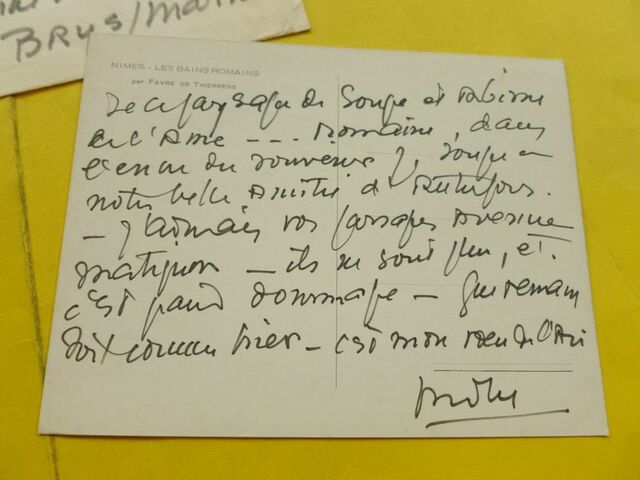 BRYS/MARN
NIMES. - LES BAINS ROMAINS
par FAVRE DE THIERRENS
De ce paysage de Songe et
de l'Ame --- Romaine, dans
du souvenir, songe à
notre belle Amitié d'Autrefois.
- J'aimais vos passages Avenue
Matignon - ils ne sont plus, et
c'est grand dommage - que demain
soit comme hier - c'est mon de l'An